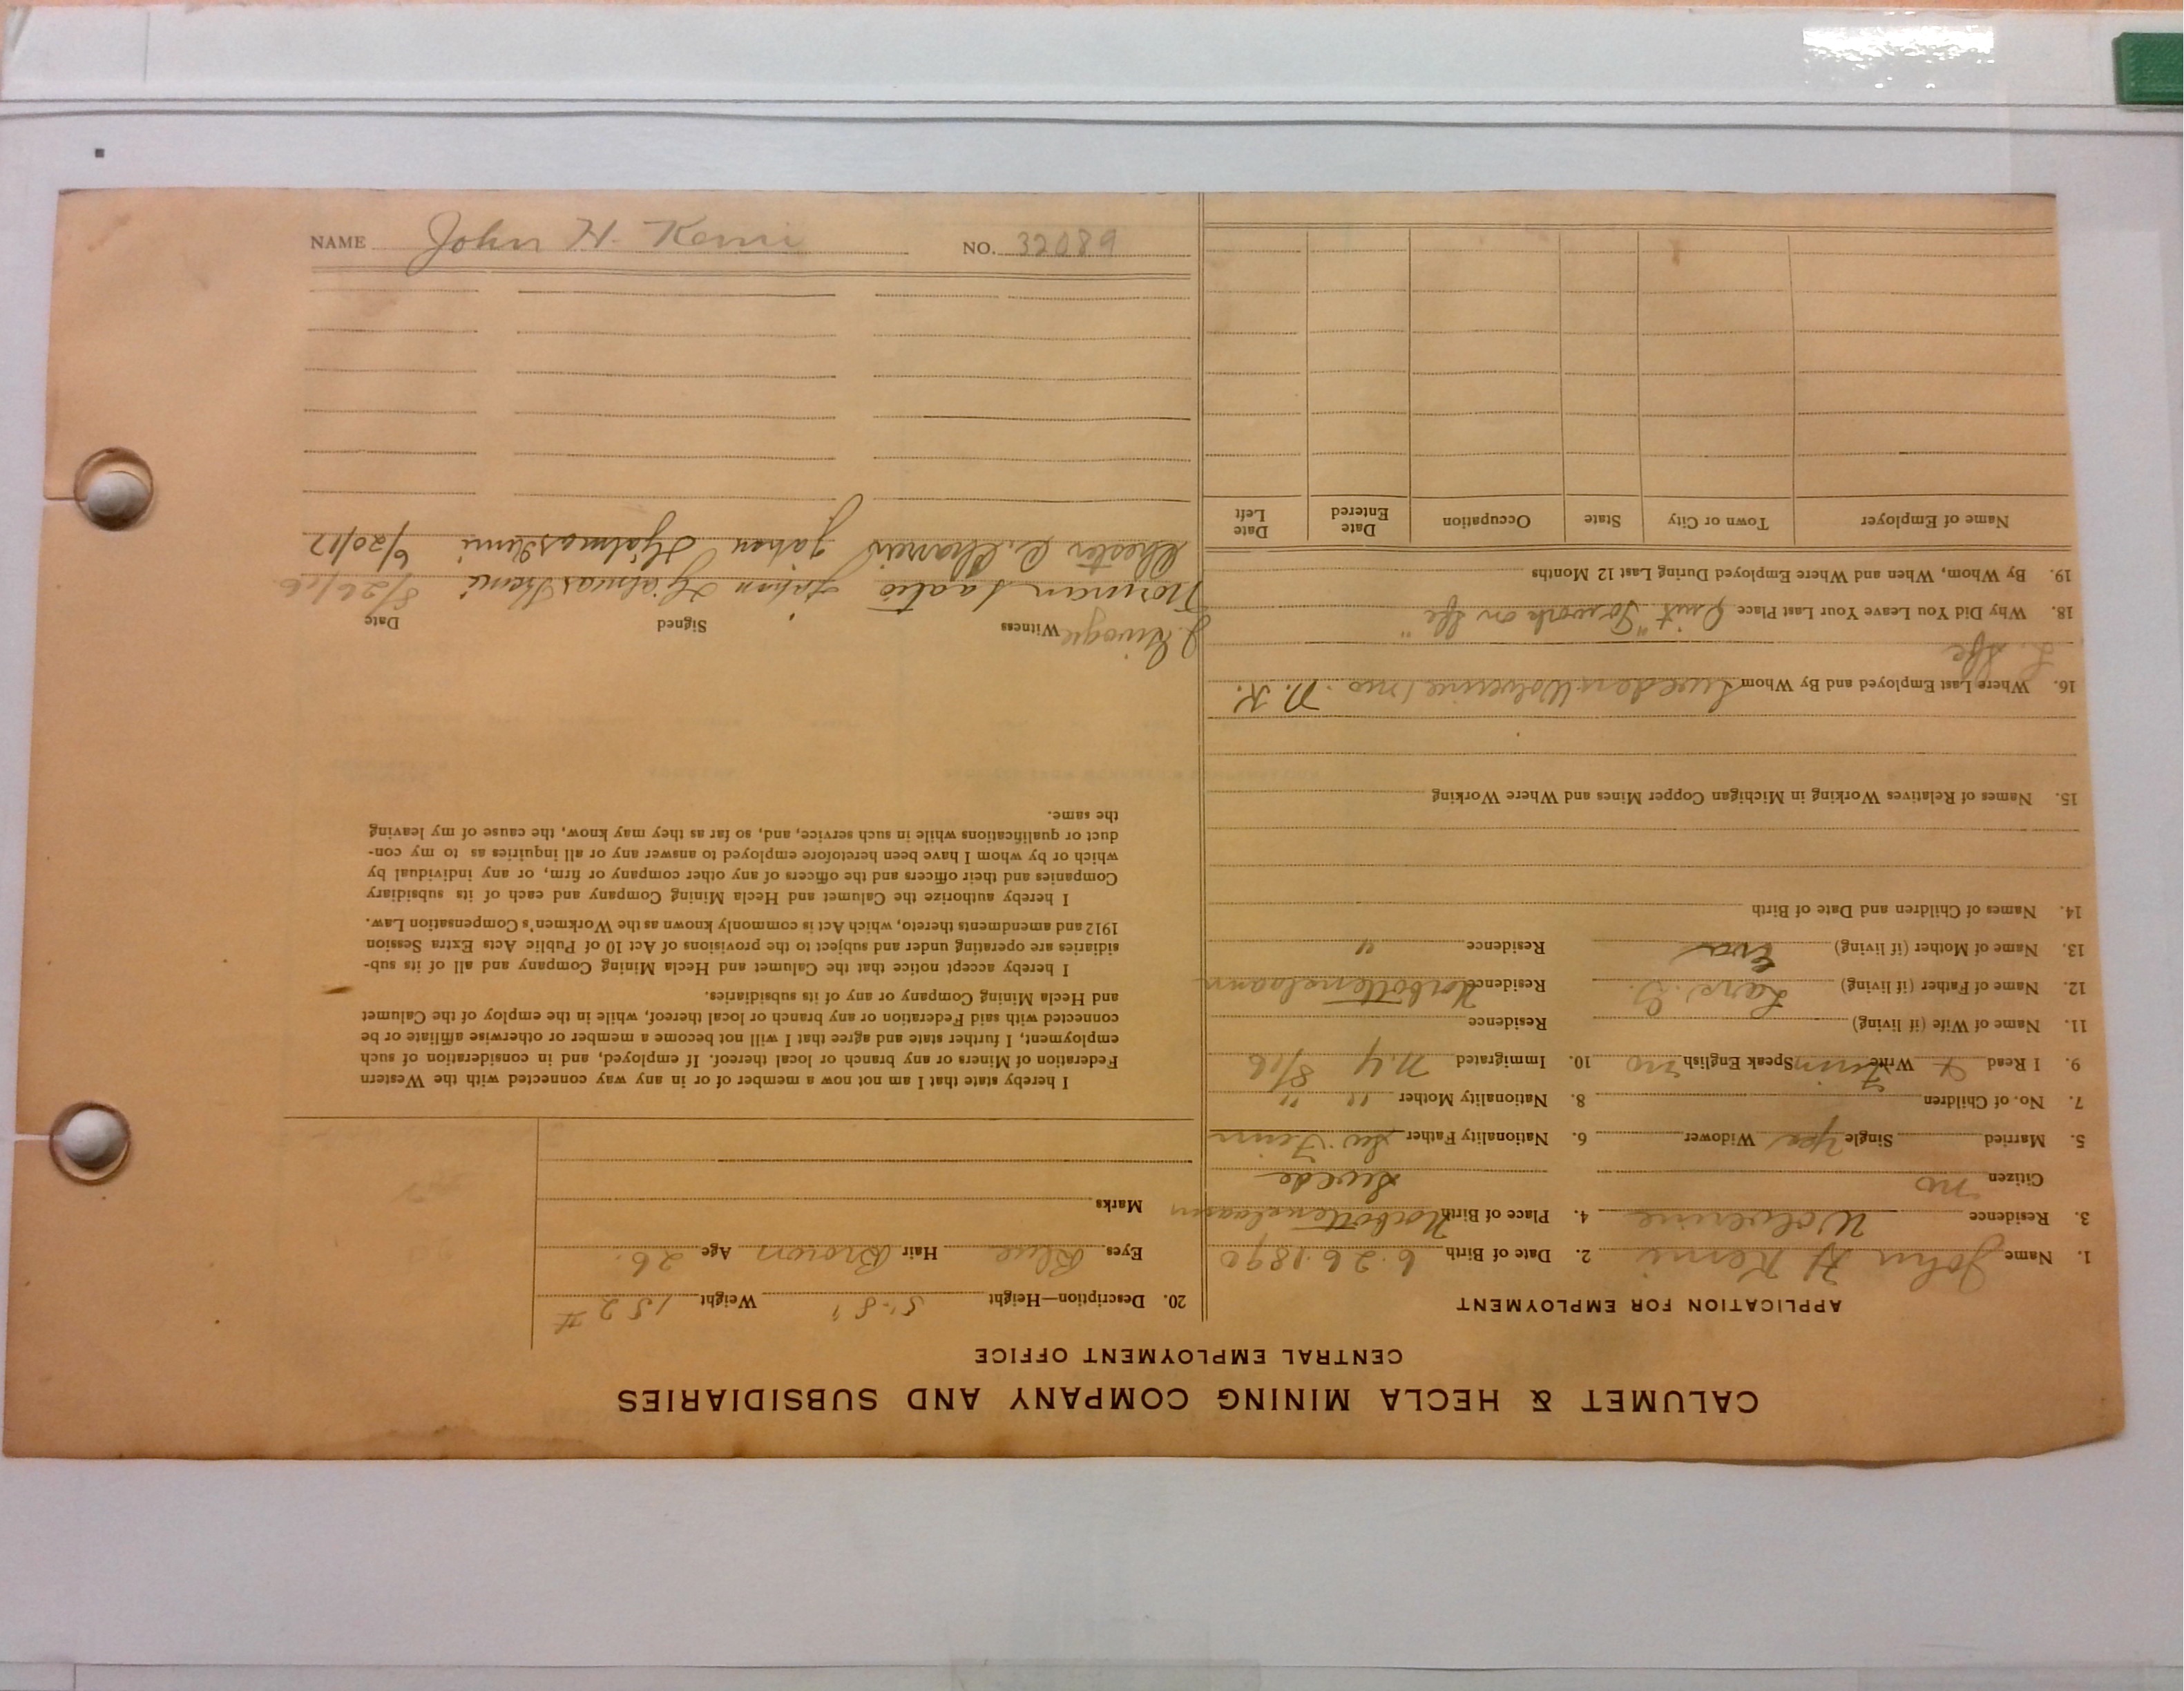 CALUMET & HECLA MINING COMPANY AND SUBSIDIARIES
CENTRAL EMPLOYMENT OFFICE
APPLICATION FOR EMPLOYMENT
1. Name John H Kemi 2. Date of Birth 6.26.1890
3. Residence Wolverine 4. Place of Birth Norbottenslaam
Citizen no Swede
5. Married Single yes Widower 6. Nationality Father Sw. Finn
7. No. of Children 8. Nationality Mother " "
9. I Read Write Finn Speak English no 10. Immigrated N.Y 8/06
11. Name of Wife (if living) Residence
12. Name of Father (if living) Lars. Residence Norbottenslaam
13. Name of Mother (if living) Eva Residence "
14. Names of Children and Date of Birth
15. Names of Relatives Working in Michigan Copper Mines and Where Working
16. Where Last Employed and By Whom Sweden Wolverine 1 mo. N. K.
18. Why Did You Leave Your Last Place Quit "To work on Sfe"
19. By Whom, When and Where Employed During Last 12 Months
Name of Employer Town or City State Occupation Date Entered Date Left
20. Description—Height 5'-8" Weight 152 #
Eyes Blue Hair Brown Age 26.
Marks
I hereby state that I am not now a member of or in any way connected with the Western
Federation of Miners or any branch or local thereof. If employed, and in consideration of such
employment, I further state and agree that I will not become a member or otherwise affiliate or be
connected with said Federation or any branch or local thereof, while in the employ of the Calumet
and Hecla Mining Company or any of its subsidiaries.
I hereby accept notice that the Calumet and Hecla Mining Company and all of its sub-
sidiaries are operating under and subject to the provisions of Act 10 of Public Acts Extra Session
1912 and amendments thereto, which Act is commonly known as the Workmen's Compensation Law.
I hereby authorize the Calumet and Hecla Mining Company and each of its subsidiary
Companies and their officers and the officers of any other company or firm, or any individual by
which or by whom I have been heretofore employed to answer any or all inquiries as to my con-
duct or qualifications while in such service, and, so far as they may know, the cause of my leaving
the same.
Witness Signed Date
Norman Johan Hjalmar Kemi 8/26/16
Chester C. Johan Hjalmar Kemi 6/20/17
NAME John H. Kemi NO. 32089